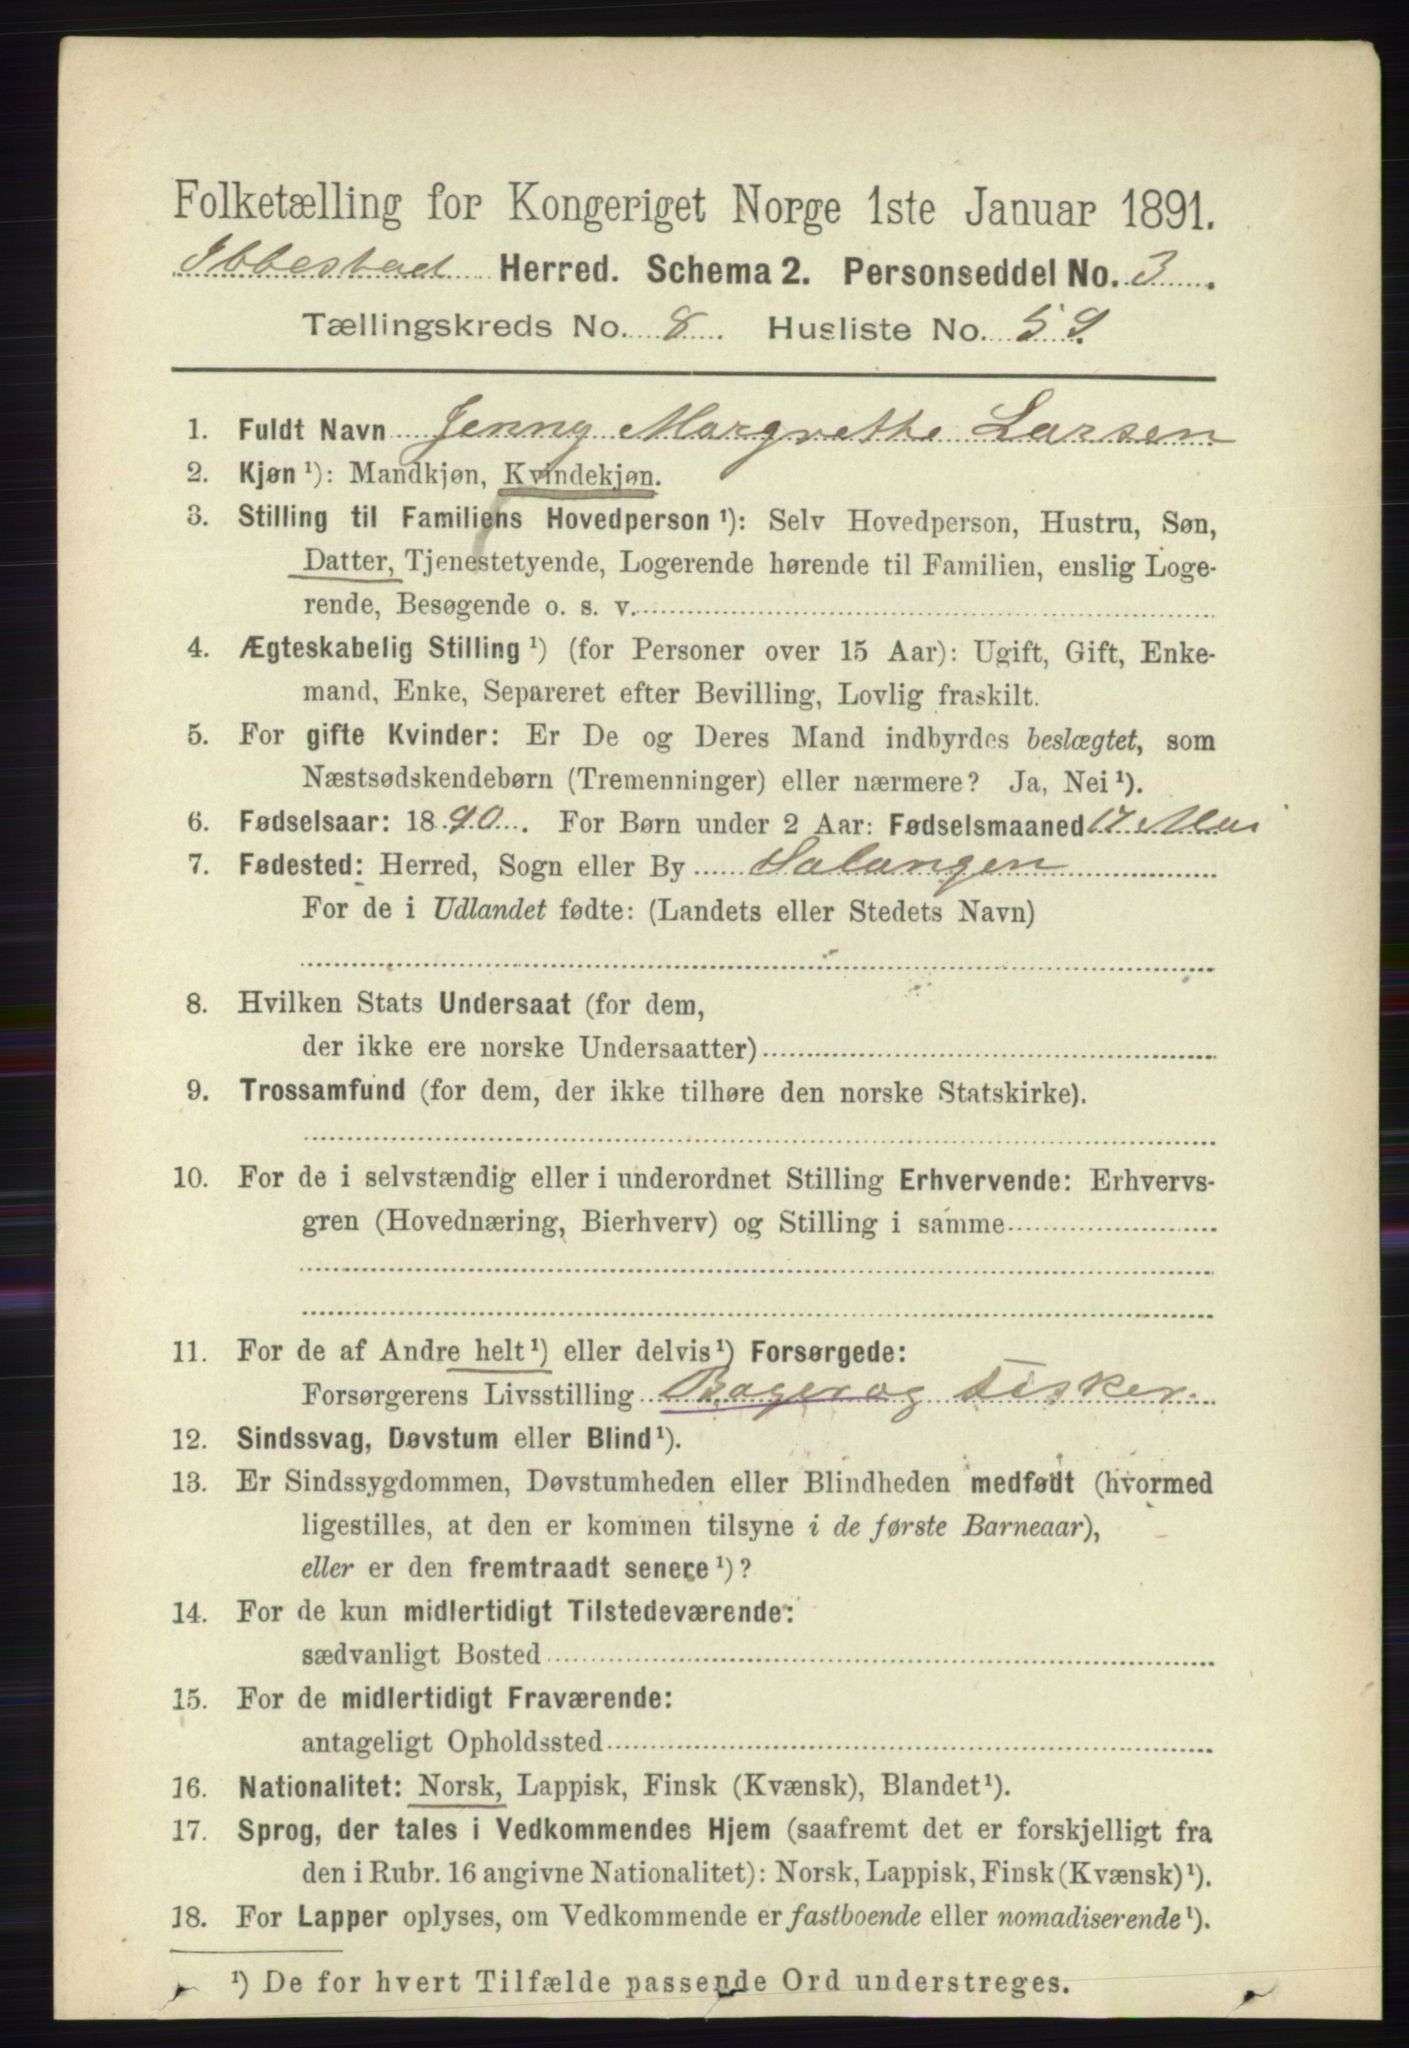 Folketælling for Kongeriget Norge 1ste Januar 1891.
Ibbestad Herred. Schema 2. Personseddel No. 3.
Tællingskreds No. 8. Husliste No. 59.
1. Fuldt Navn Jenny Margrethe Larsen
2. Kjøn ¹): Mandkjøn, Kvindekjøn.
3. Stilling til Familiens Hovedperson ¹): Selv Hovedperson, Hustru, Søn,
Datter, Tjenestetyende, Logerende hørende til Familien, enslig Loge-
rende, Besøgende o. s. v.
4. Ægteskabelig Stilling ¹) (for Personer over 15 Aar): Ugift, Gift, Enke-
mand, Enke, Separeret efter Bevilling, Lovlig fraskilt.
5. For gifte Kvinder: Er De og Deres Mand indbyrdes beslægtet, som
Næstsødskendebørn (Tremenninger) eller nærmere? Ja, Nei ¹).
6. Fødselsaar: 1890. For Børn under 2 Aar: Fødselsmaaned 17 Mai
7. Fødested: Herred, Sogn eller By Salangen
For de i Udlandet fødte: (Landets eller Stedets Navn)
8. Hvilken Stats Undersaat (for dem,
der ikke ere norske Undersaatter)
9. Trossamfund (for dem, der ikke tilhøre den norske Statskirke).
10. For de i selvstændig eller i underordnet Stilling Erhvervende: Erhvervs-
gren (Hovednæring, Bierhverv) og Stilling i samme
11. For de af Andre helt ¹) eller delvis ¹) Forsørgede:
Forsørgerens Livsstilling Bager og Fisker.
12. Sindssvag, Døvstum eller Blind ¹).
13. Er Sindssygdommen, Døvstumheden eller Blindheden medfødt (hvormed
ligestilles, at den er kommen tilsyne i de første Barneaar),
eller er den fremtraadt senere ¹)?
14. For de kun midlertidigt Tilstedeværende:
sædvanligt Bosted
15. For de midlertidigt Fraværende:
antageligt Opholdssted
16. Nationalitet: Norsk, Lappisk, Finsk (Kvænsk), Blandet ¹).
17. Sprog, der tales i Vedkommendes Hjem (saafremt det er forskjelligt fra
den i Rubr. 16 angivne Nationalitet): Norsk, Lappisk, Finsk (Kvænsk) ¹).
18. For Lapper oplyses, om Vedkommende er fastboende eller nomadiserende ¹).
¹) De for hvert Tilfælde passende Ord understreges.